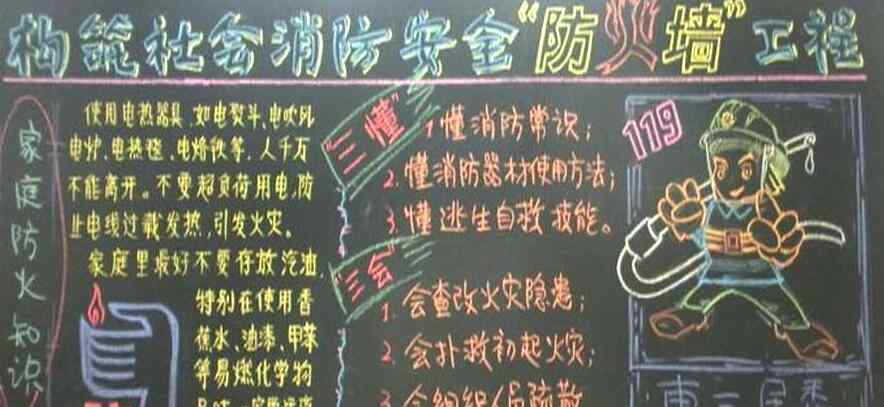 构筑社会消防安全“防火墙”工程
家庭防火知识
使用电热器具,如电熨斗、电吹风
电炉、电热毯、电烙铁等,人千万
不能离开。不要超负荷用电,防
止电线过载发热,引发火灾。
家庭里最好不要存放汽油,
特别在使用香
蕉水、油漆、甲苯
等易燃化学物
“三懂”
1.懂消防常识;
2.懂消防器材使用方法;
3.懂逃生自救技能。
“三会”
1.会查改火灾隐患;
2.会扑救初起火灾;
3.会组织人员疏散
119